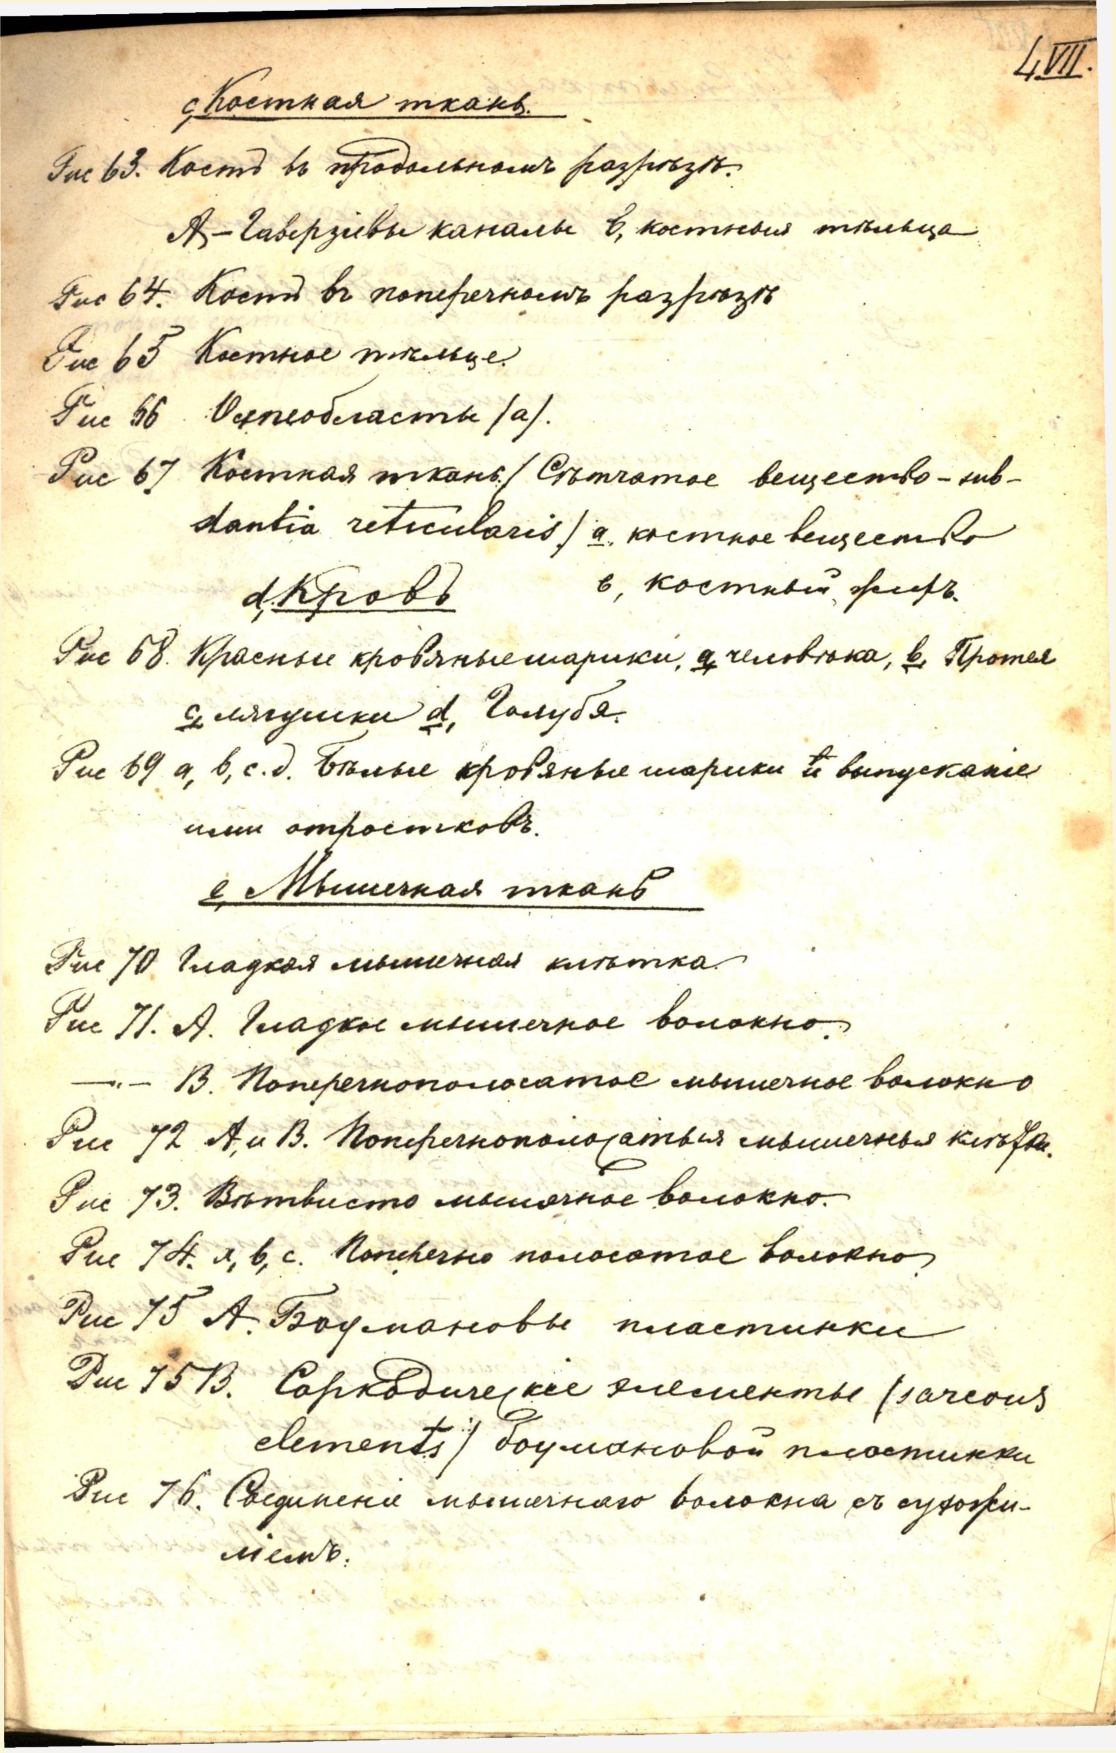 L, VII.
c, Костная ткань.
Рис 63. Кость въ продольномъ разрѣзѣ.
А, – Гаверзіевы каналы b, костныя тѣльца
Рис 64. Кость въ поперечномъ разрѣзѣ
Рис 65 Костное тѣльце.
Рис 66 Остеобласты (а).
Рис 67 Костная ткань (Сѣтчатое вещество – sub-
stantia reticularis) а, костное вещество
в, костный жиръ.
d, Кровь
Рис 68. Красные кровяные шарики, а, человѣка, b, Протея
с, лягушки d, Голубя.
Рис 69 а, b, c. d. Бѣлые кровяные шарики и выпусканіе
ими отростковъ.
е, Мышечная ткань
Рис 70 Гладкая мышечная клѣтка.
Рис 71. А. Гладкое мышечное волокно.
—„— В. Поперечнополосатое мышечное волокно
Рис 72 А, и В. Поперечнополосатыя мышечныя клѣтки.
Рис 73. Вѣтвисто мышечное волокно.
Рис 74. а, b, с. Поперечно полосатое волокно.
Рис 75 А. Боумановы пластинки
Рис 75 В. Саркодическіе элементы (sarcous
elements) боумановой пластинки
Рис 76. Соединеніе мышечнаго волокна съ сухожи-
ліемъ.